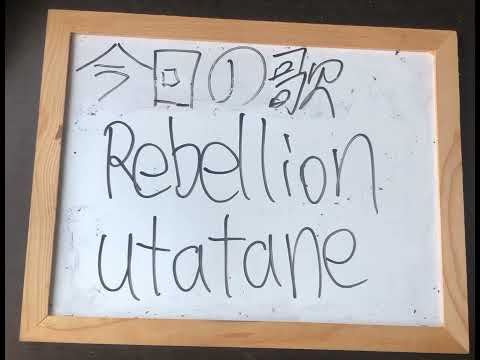 今回の歌
Rebellion
utatane